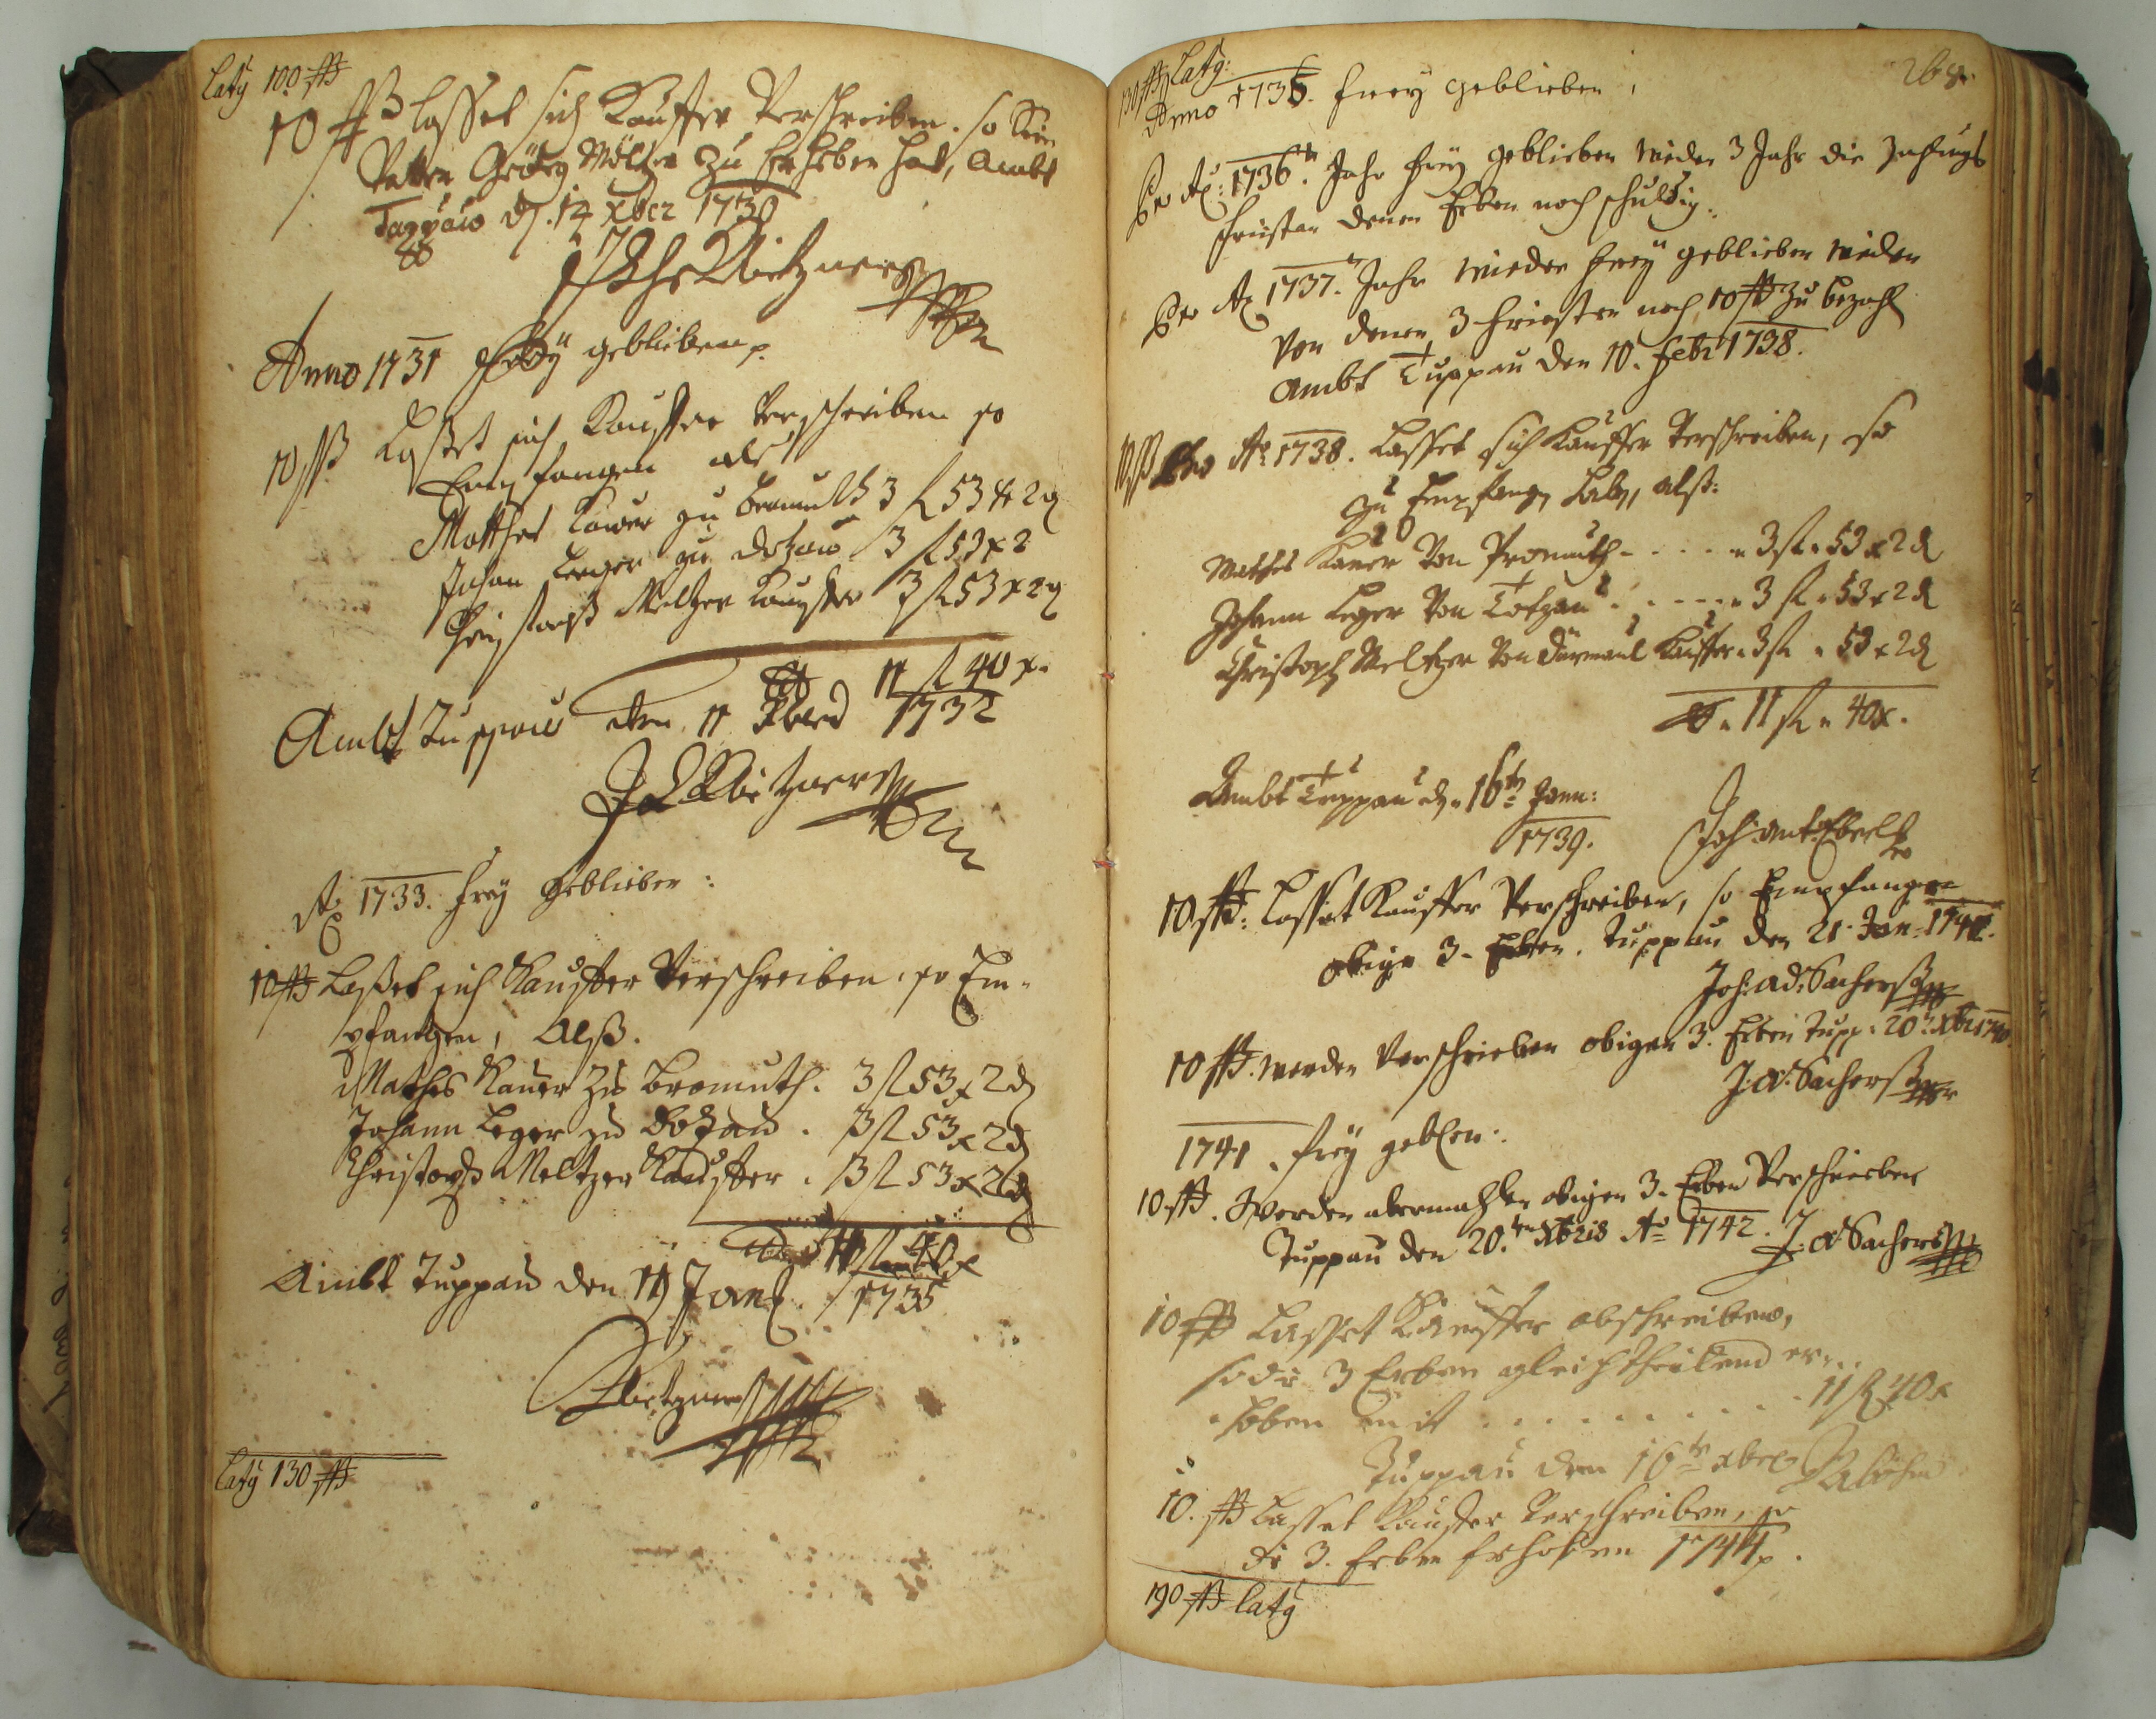 Latq 100 ßß
10 ßß lasset sich Kauffer Verschreiben. so sein
Vatter Geörg Möltzer zu Erheben hat, Ambt
Tuppau d. 14 xber 1730
Anno 1731 frey geblieben.
10 ßß Lasset sich Kauffer verschreiben so
Empfangen als
Matthes Kauer zu bramuth 3 fl 53 x 2 d
Johan Leger zu dotzau 3 fl 53 x 2
Christoph Meltzer Kauffer 3 fl 53 x 2 d
11 fl 40 x.
Ambt Tuppau den 11 xber 1732
Ao 1733. frey geblieben:
10 ßß Lasset sich Kauffer Verschreiben so Em-
pfangen, Alß.
Mathes Kauer zu bromuth. 3 fl 53 x 2 d
Johann Leger zu dotzau. 3 fl 53 x 2 d
Christoph Meltzer Kauffer. 3 fl 53 x 2 d
11 fl 40 x
Ambt Tuppau den 19 Jan. 1735
Latq 130 ßß
130 ßß Latq:
Anno 1735. frey geblieben,
Pro Ao: 1736. Jahr frey geblieben wieder 3 Jahr die
fristen denen Erben noch schuldig.
Pro Ao 1737. Jahr wieder frey geblieben wieder
von denen 3 fristen noch 10 ßß zu bezahl
Ambt Tuppau den 10. Febr 1738.
10 ßß Pro Ao 1738. Lasset sich Kauffer Verschreiben, so
zu Empfang haben, alß:
Mathes Kauer Von Promuth - . . . . " 3 fl " 53 x 2 d
Johann Leger Von Totzau . . . . . " 3 fl " 53 x 2 d
Christoph Meltzer Von Dürmaul Kauffer " 3 fl " 53 x 2 d
" 11 fl " 40 x.
Ambt Tuppau d. 16ten Jann:
1739. Joh: Ant: Ebert
10 ßß: Lasset Kauffer Verschreiben, so Empfangen
obige 3. Erben. Tuppau den 21. Jan. 1740.
Joh: Ad: Sacherß
10 ßß. werden Verschrieben obigen 3. Erben Tupp: 20. xbr 1740.
J: A: Sacherß
1741. frey geblen:
10 ßß. Werden abermahlen obigen 3. Erben Verschrieben
Tuppau den 20.ten xbris Ao 1742. J: A: Sacherß
10 ßß Lasset Kauffer abschreiben,
so die 3 Erben gleichtheilend er-
hoben mit . . . . . . . . . 11 fl 40 x
Tuppau den 16ten xber
10. ßß Lasset Kauffer Verschreiben, so
die 3. Erben Erhoben 1744.
190 ßß Latq